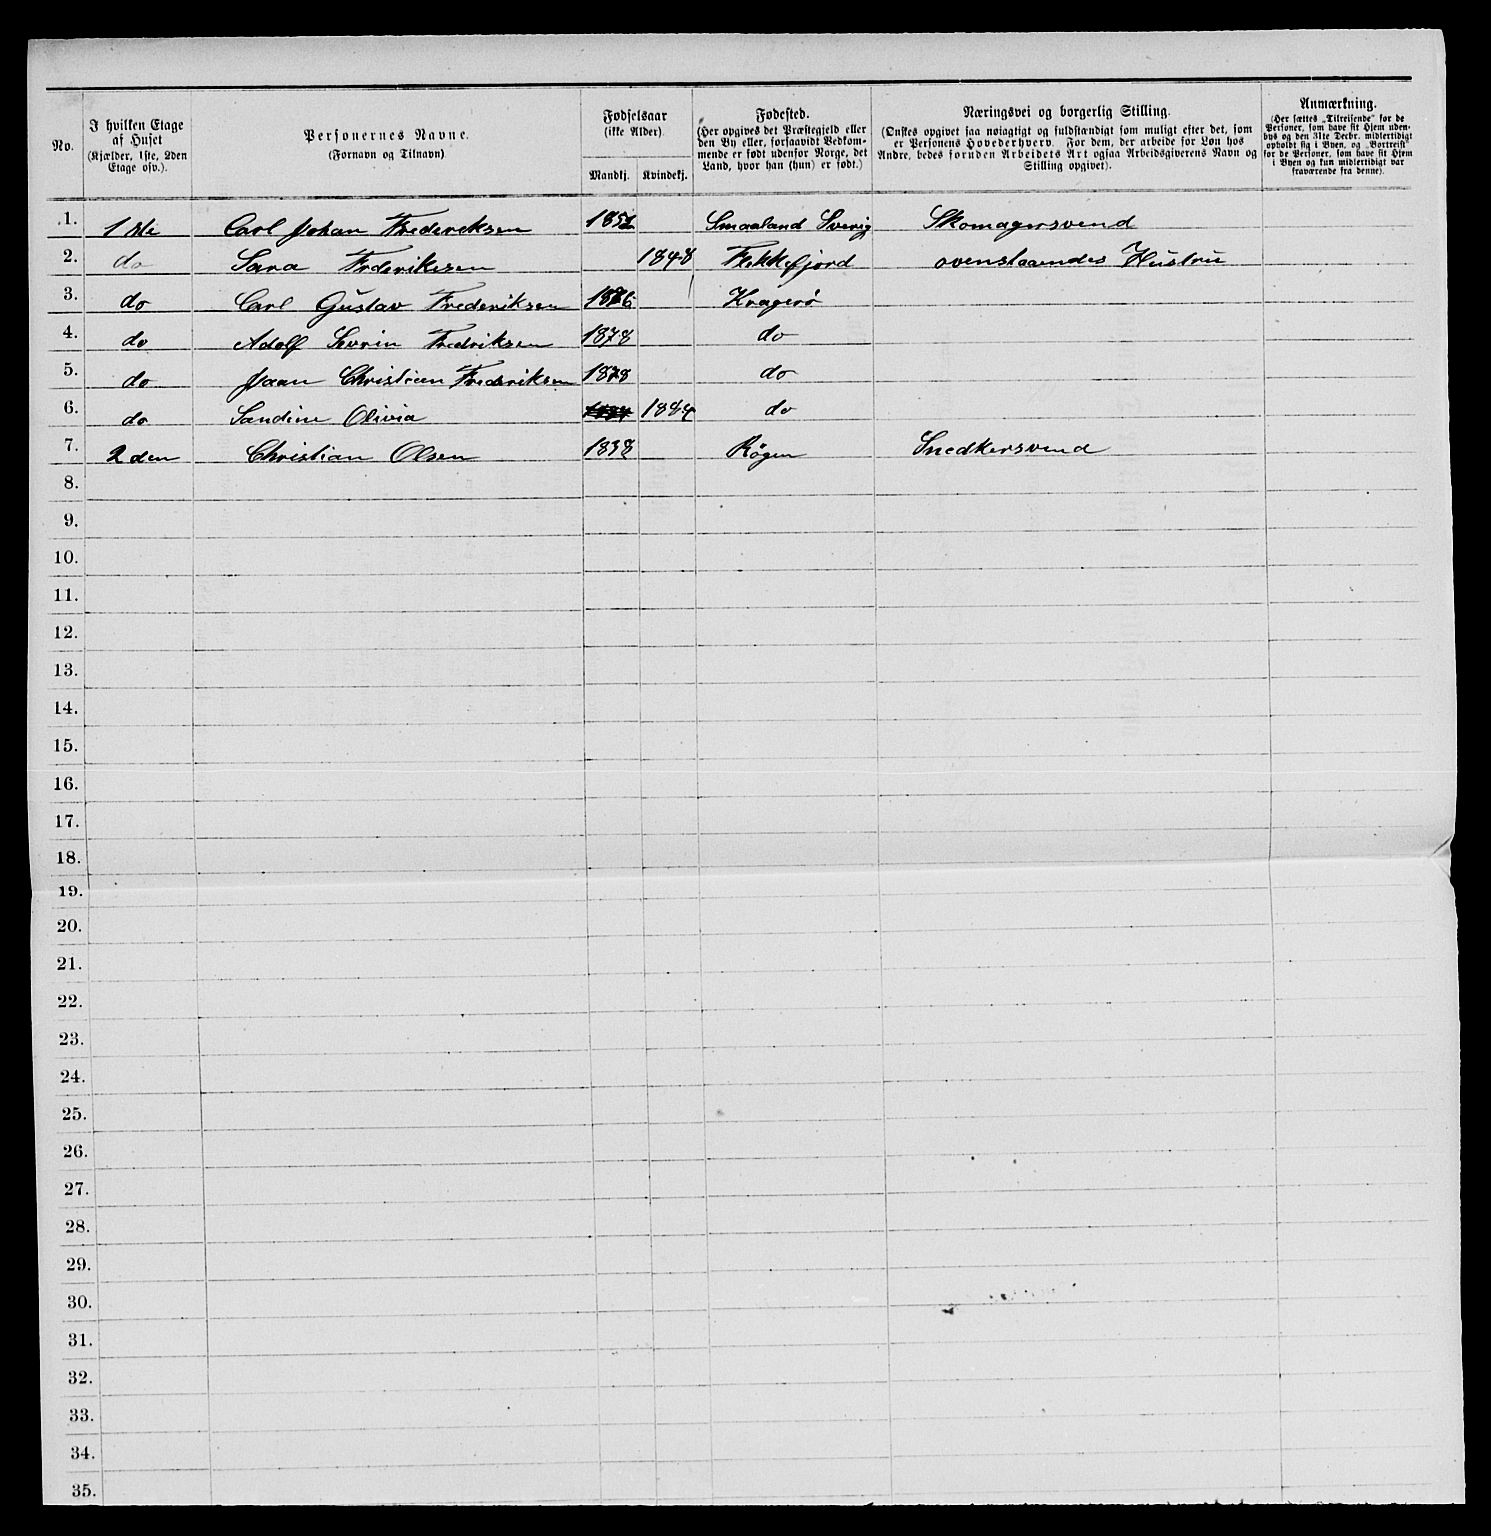 No.
I hvilken Etage
af Huset
(Kjælder, 1ste, 2den
Etage osv.).
Personernes Navne.
(Fornavn og Tilnavn)
Fødselsaar
(ikke Alder)
Mandkj. Kvindekj.
Fødested.
(Her opgives det Præstegjeld eller
den By eller, forsaavidt Vedkom-
mende er født udenfor Norge, det
Land, hvor han (hun) er født.)
Næringsvei og borgerlig Stilling.
(Ønskes opgivet saa nøiagtigt og fuldstændigt som muligt efter det, som
er Personens Hovederhverv. For dem, der arbeide for Løn hos
Andre, bedes foruden Arbeidets Art ogsaa Arbeidsgiverens Navn og
Stilling opgivet).
Anmærkning.
(Her sættes „Tilreisende" for de
Personer, som have sit Hjem uden-
bys og den 31te Decbr. midlertidigt
opholdt sig i Byen, og „Bortreist"
for de Personer, som have sit Hjem
i Byen og kun midlertidigt var
fraværende fra denne).
1. 1ste Carl Johan Fredereksen 1852 Smaaland Sverig Skomagersvend
2. do Sara Frderiksen 1848 Flekkefjord ovenstaaendes Hustru
3. do Carl Gustav Frederiksen 1876 Kragerø
4. do Adolf Sevrin Fredriksen 1878 do
5. do Christian Frederiksen 1878 do
6. do Sandine Olivia 1884 do
7. 2den Christian Olsen 1838 Røgen Snedkersvend
8.
9.
10.
11.
12.
13.
14.
15.
16.
17.
18.
19.
20.
21.
22.
23.
24.
25.
26.
27.
28.
29.
30.
31.
32.
33.
34.
35.